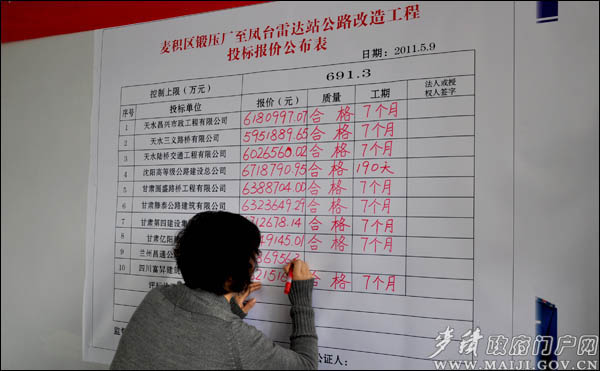 麦积区锻压厂至凤台雷达站公路改造工程
投标报价公布表
日期：2011.5.9
控制上限（万元） 691.3
序号 投标单位 报价（元） 质量 工期 法人或授权人签字
1 天水昌兴市政工程有限公司 6180997.07 合格 7个月
2 天水三义路桥有限公司 5951889.65 合格 7个月
3 天水陆桥交通工程有限公司 6026560.02 合格 7个月
4 沈阳高等级公路建设总公司 6718790.95 合格 190天
5 甘肃圆盛路桥工程有限公司 6388704.00 合格 7个月
6 甘肃陇泰公路建筑有限公司 6323649.29 合格 7个月
7 甘肃第四建设集 712678.14 合格 7个月
8 甘肃亿阳 49145.01 合格 7个月
9 兰州昌通公 36956
10 四川富昇建筑 2151 合格 7个月
公证人：
麦积政府门户网
WWW.MAIJI.GOV.CN